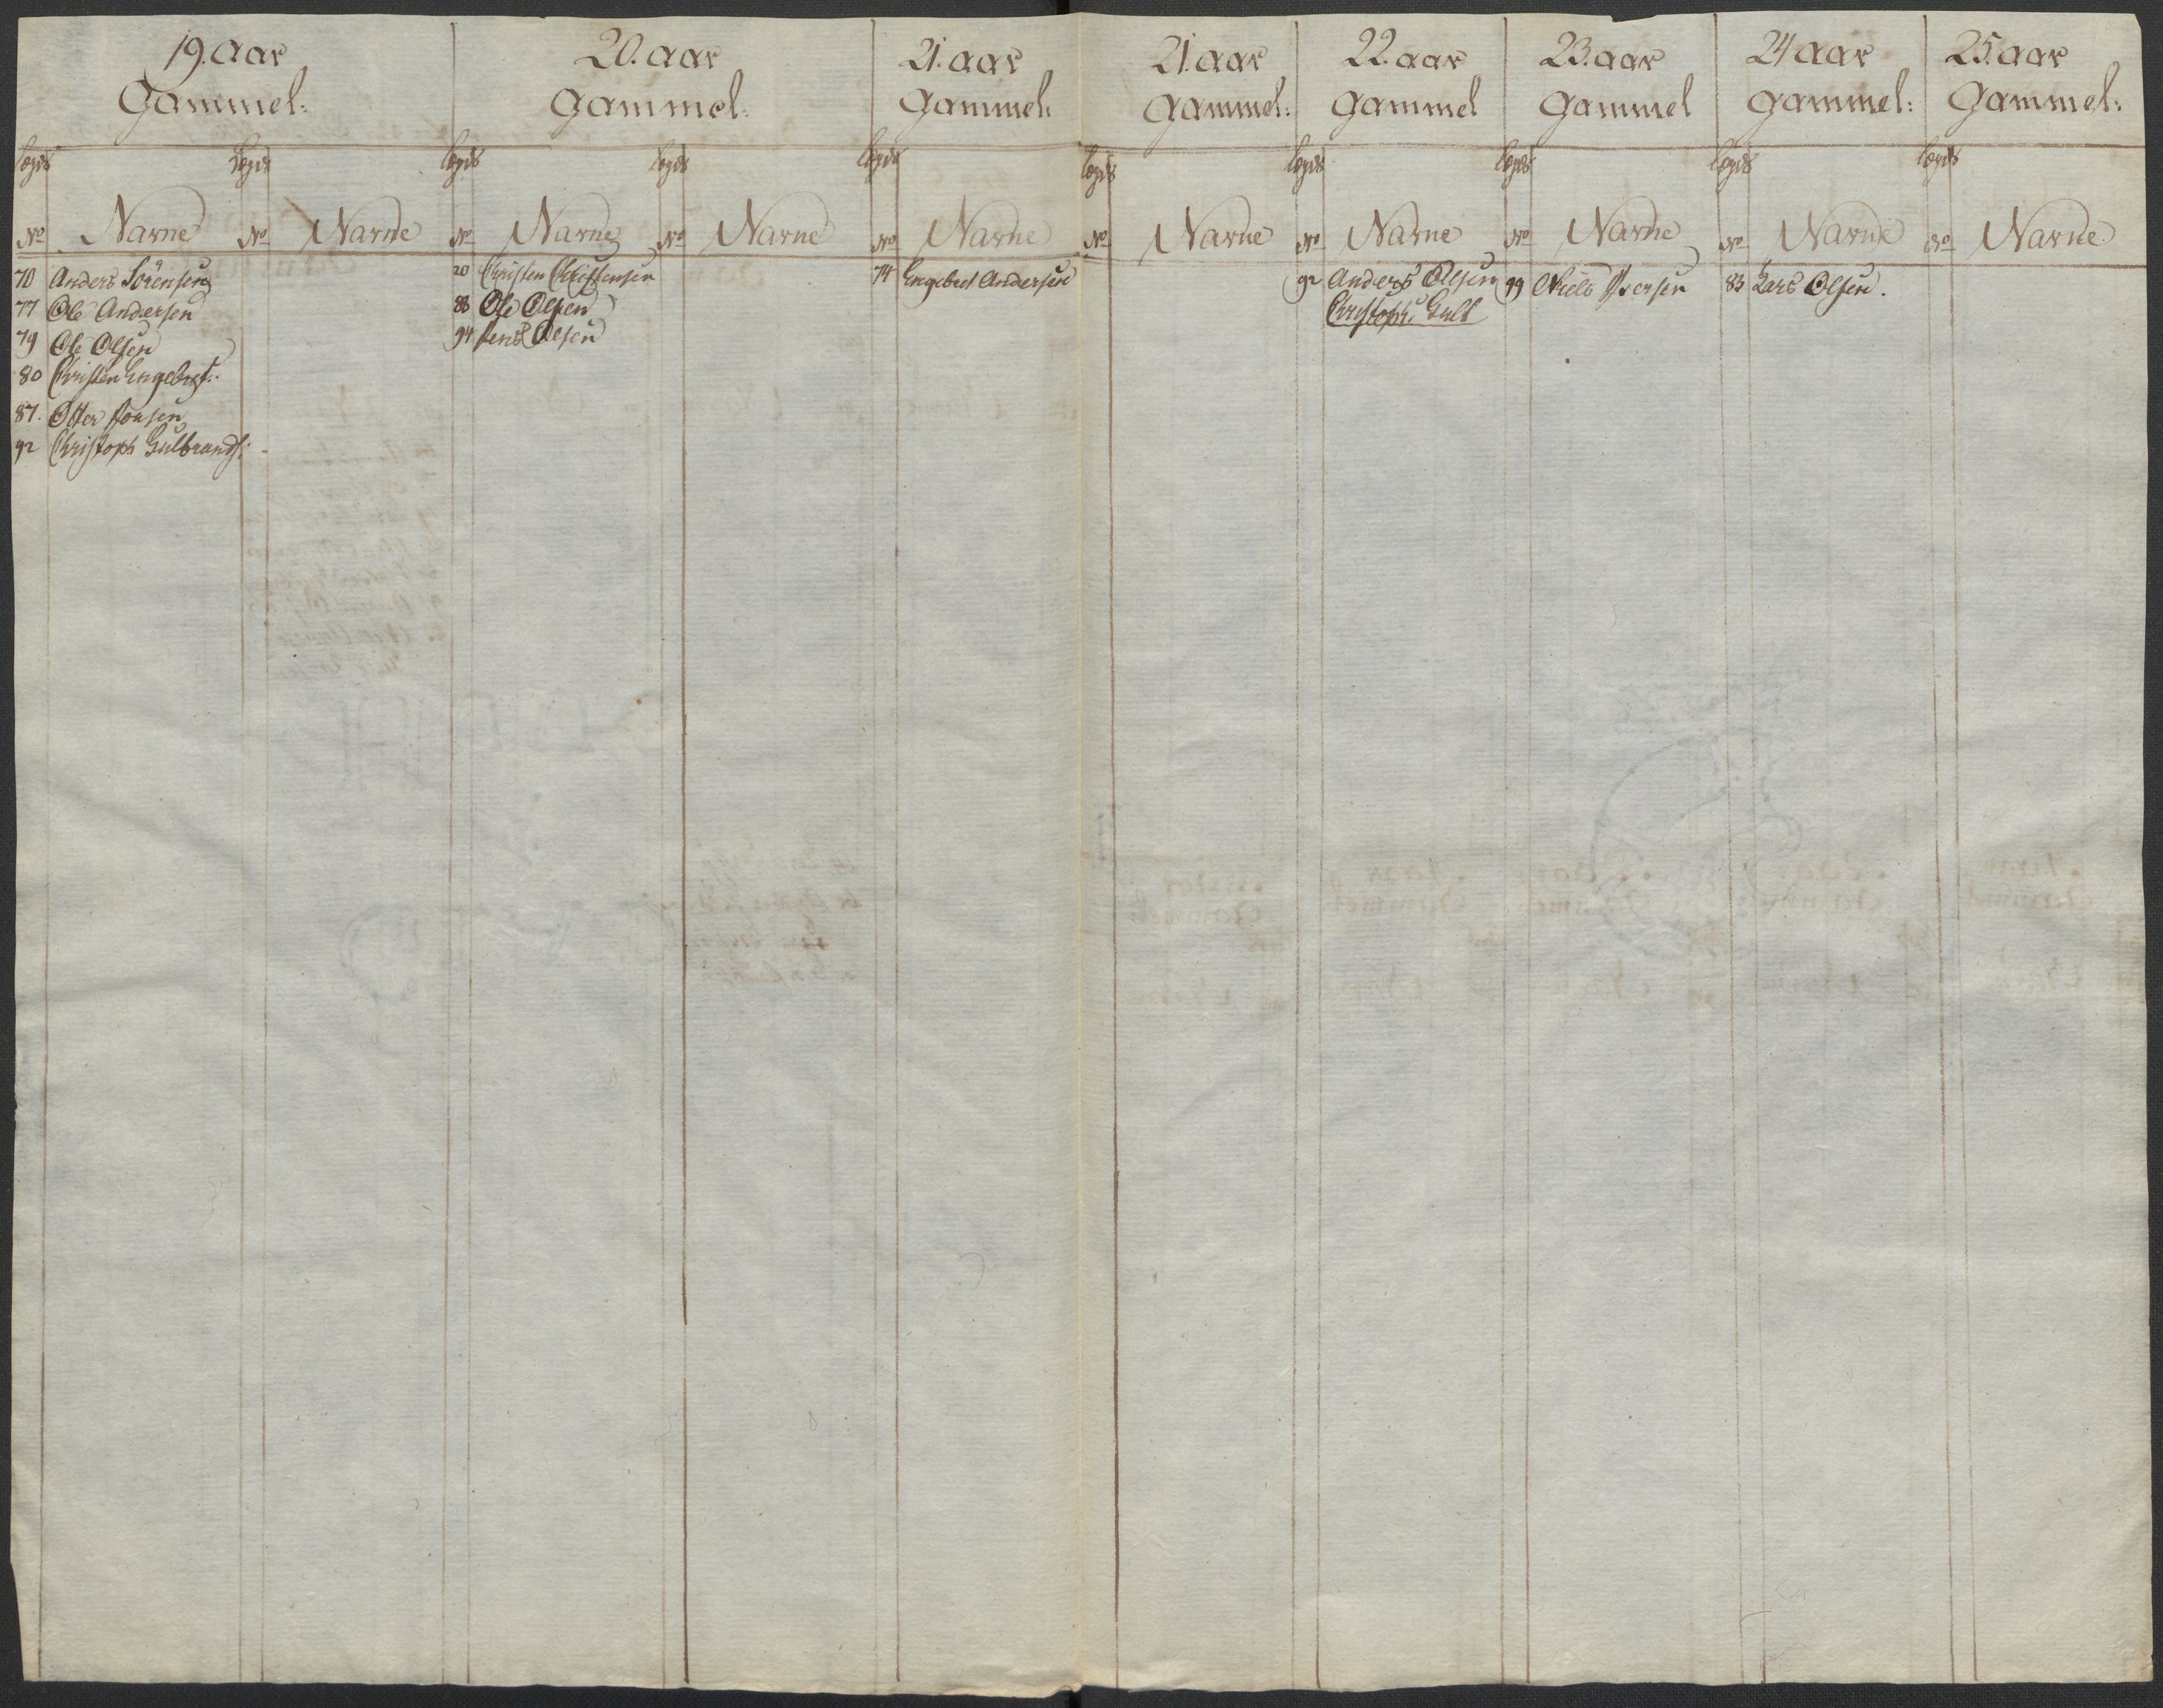 19. aar
Gammel:
Lægds
No
Navne
Lægds
No
Navne
70 Anders Sörensen
77 Ole Andersen
79 Ole Olsen
80 Christen Engebrgt:
87. Otter Jonsen
92 Christoph Gulbrands:
20. aar
Gammel:
Lægds
No
Navne
Lægds
No
Navne
20 Christen Christensen
88 Ole Olsen
94 Jens Olsen
21. aar
Gammel:
Lægds
No
Navne
74 Engebret Andersen
21. aar
Gammel:
Lægds
No
Navne
22. aar
Gammel
Lægds
No
Navne
92 Anders Olsen
Christoph: Gulb
23. aar
Gammel
Lægds
No
Navne
99 Niels Iversen
24 aar
Gammel:
Lægds
No
Navne
83 Lars Olsen.
25. aar
Gammel:
Lægds
No
Navne